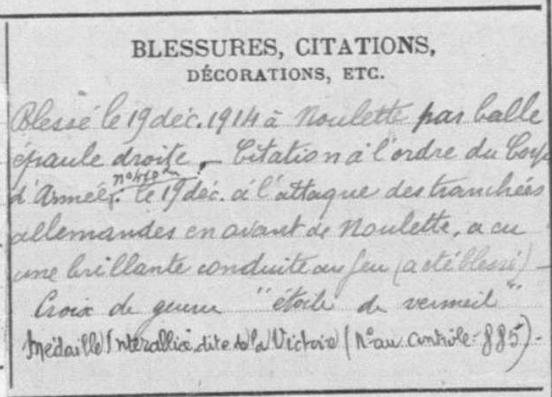 BLESSURES, CITATIONS,
DÉCORATIONS, ETC.
Blessé le 19 déc. 1914 à Noulette par balle
épaule droite. Citation à l'ordre du Corps
d'Armée. le 19 déc. à l'attaque des tranchées
allemandes en avant de Noulette, a eu
une brillante conduite au feu (a été blessé) -
Croix de guerre "étoile de vermeil"
Médaille Interalliée dite de la Victoire (N° au contrôle: 885).-